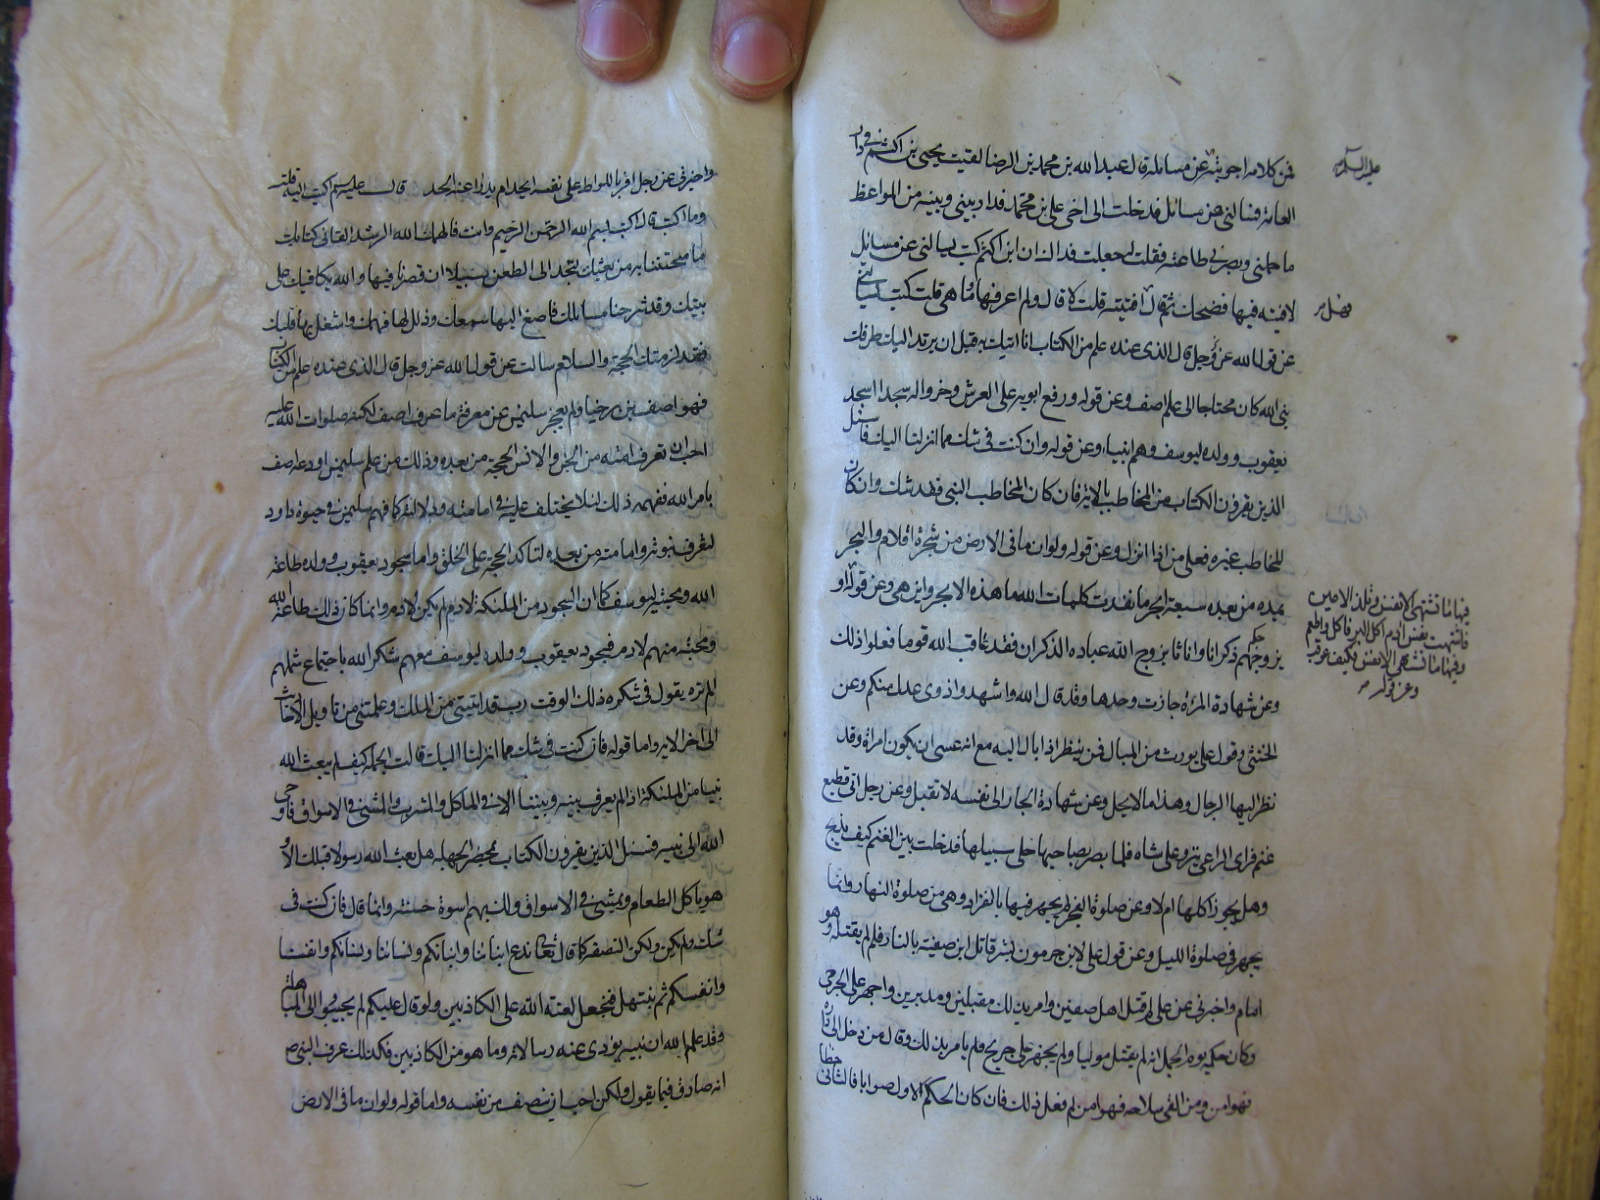 من كلامه اجوبته عن مسائله قال عبد الله بن محمد بن الرضا لقيت يحيى بن اكثم في دار
العامة فسالني عن مسائل فدخلت الى اخي علي بن محمد فدار بيني وبينه من المواعظ
ما حملني وبصرني طاعته فقلت له جعلت فداك ان ابن اكثم كتب يسالني عن مسائل
لافتيه فيها فضحك ثم قال افتيته قلت لا قال ولم اعرفها ما هي قلت كتب يسالني
عن قول الله عز وجل قال الذي عنده علم من الكتاب انا اتيك به قبل ان يرتد اليك طرفك
نبي الله كان محتاجا الى علم اصف وعن قوله ورفع ابويه على العرش وخروا له سجدا اسجد
يعقوب وولده ليوسف وهم انبياء وعن قوله وان كنت في شك مما انزلنا اليك فاسئل
الذين يقرؤن الكتاب من المخاطب بالاية فان كان المخاطب النبي فقد شك وان كان
المخاطب غيره فعلى من اذا انزل وعن قوله ولو ان ما في الارض من شجرة اقلام والبحر
يمده من بعده سبعة ابحر ما نفدت كلمات الله ما هذه الابحر واين هي وعن قوله او
يزوجهم ذكرانا واناثا يزوج الله عباده الذكران فقد عاقب الله قوما فعلوا ذلك
وعن شهادة المرءة جازت وحدها وقد قال الله واشهدوا ذوي عدل منكم وعن
الخنثى وقول علي يورث من المبال فمن ينظر اذا بال اليه مع انه عسى ان يكون امراة وقد
نظر اليها الرجال وهذا ما لا يحل وعن شهادة الجار الى نفسه لا تقبل وعن رجل اتى قطيع
غنم فراى الراعي ينزو على شاة فلما بصر بصاحبها خلى سبيلها فدخلت بين الغنم كيف يذبح
وهل يجوز اكلها ام لا وعن صلوة الفجر لم يجهر فيها بالقراءة وهي من صلوة النهار وانما
يجهر في صلوة الليل وعن قول علي لابن جرموز بشر قاتل ابن صفية بالنار فلم لم يقتله وهو
امام واخبرني عن علي لم قتل اهل صفين وامر بذلك مقبلين ومدبرين واجهز على الجرحى
وكان حكمه يوم الجمل انه لم يقتل موليا ولم يجهز على جريح فلم يامر بذلك وقال من دخل داره
فهو امن ومن القى سلاحه فهو امن لم فعل ذلك فان كان الحكم الاول صوابا فالثاني خطا
عليه السلام
فيها ما تشتهي الانفس وتلذ الاعين
فاشتهت نفس ادم اكل البر فاكل واطعم
وفيها ما تشتهي الانفس فكيف عوقب
وعن قوله
واخبرني عن رجل اقر باللواط على نفسه ايحد ام يدرا عنه الحد قال عليه السلام اكتب اليه قلت
وما اكتب قال اكتب بسم الله الرحمن الرحيم وانت فالهمك الله الرشد القاني كتابك
ما امتحنتنا به من تعنتك لتجد الى الطعن سبيلا ان قصرنا فيها والله يكافيك على
نيتك وقد شرحنا مسائلك فاصغ اليها سمعك وذلل لها فهمك واشغل بها قلبك
فقد لزمتك الحجة والسلام سالت عن قول الله عز وجل قال الذي عنده علم من الكتاب
فهو اصف بن برخيا ولم يعجز سليمن عن معرفة ما عرف اصف لكنه صلوات الله عليه
احب ان تعرف امته من الجن والانس انه الحجة من بعده وذلك من علم سليمن اودعه اصف
بامر الله ففهمه ذلك لئلا يختلف عليه في امامته ودلالته كما فهم سليمن في حيوة داود
لتعرف نبوته وامامته من بعده لتاكد الحجة على الخلق واما سجود يعقوب وولده طاعة
الله ومحبة ليوسف كما ان السجود من الملئكة لادم لم يكن لادم وانما كان ذلك طاعة لله
ومحبة منهم لادم فسجود يعقوب وولده ليوسف معهم شكر الله باجتماع شملهم
الم تره يقول في شكره ذلك الوقت رب قد اتيتني من الملك وعلمتني من تاويل الاحاديث
الى اخر الاية واما قوله فان كنت في شك مما انزلنا اليك قالت الجهلة كيف لم يبعث الله
نبيا من الملئكة اذ لم يعرف بينه وبيننا الا في الماكل والمشرب والمشي في الاسواق فاوحى
الله الى نبيه فسئل الذين يقرؤن الكتاب بمحضر الجهلة هل بعث الله رسولا قبلك الا و
هو ياكل الطعام ويمشي في الاسواق ولك بهم اسوة حسنة وانما قال فان كنت في
شك ولم يكن ولكن النصفة كما قال تعالى ندع ابنائنا وابنائكم ونسائنا ونسائكم وانفسنا
وانفسكم ثم نبتهل فنجعل لعنة الله على الكاذبين ولو قال عليكم لم يجيبوا الى المباهلة
وقد علم الله ان نبيه يؤدي عنه رسالاته وما هو من الكاذبين فكذلك عرف النبي ص
انه صادق فيما يقول ولكن احب ان ينصف من نفسه واما قوله ولو ان ما في الارض